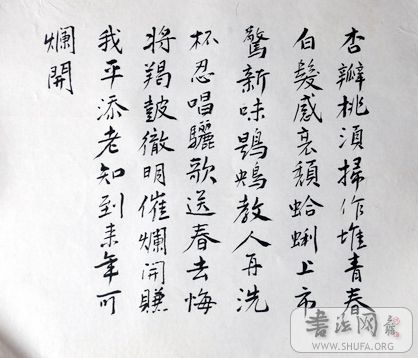 杏瓣桃須掃作堆青春
白髮感衰頹蛤蜊上市
驚新味鶗鴂教人再洗
杯忍唱驪歌送春去悔
將羯鼓徹明催爛開賺
我平添老知到来年可
爛開
書法网
WWW.SHUFA.ORG